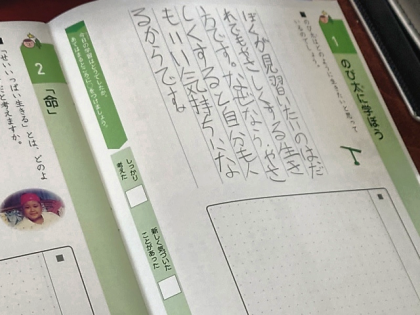 1
のび太に学ぼう
ぼくが見習いたいのはだ
れでもやさしくする生き
方です。なぜなら、やさ
しくすると自分も人
もいい気持ちにな
るからです。
しっかり
考えた
新しく気づいた
ことがあった
2
「命」
「せいいっぱい生きる」とは、どのよ
だと考えますか。